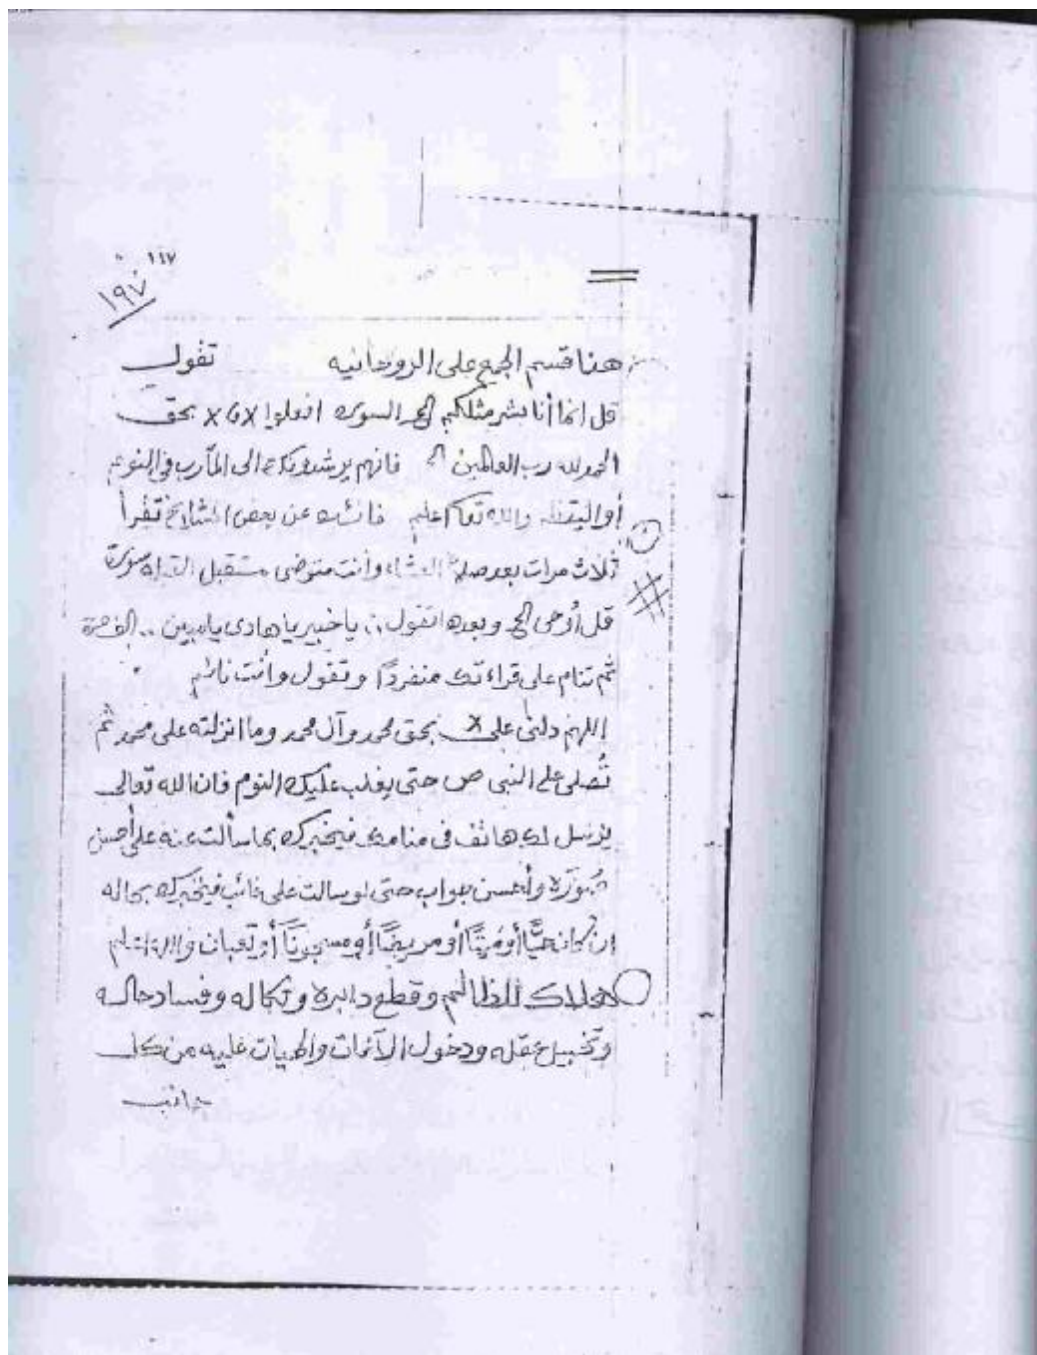 ١٩٧
هنا قسم الجمع على الروحانيه تقول
قل انما أنا بشر مثلكم الخ السورة افعلوا x بحق
الحمد لله رب العالمين الخ فانهم يرشدونك الى المآرب فى النوم
أو اليقظه والله تعا اعلم فائده عن بعض المشايخ تقرأ
ثلاث مرات بعد صلاة العشاء وانت متوضى مستقبل القبله سورة
قل أوحى الخ وبعدها تقول : ياخبير ياهادى يامبين ..
ثم تنام على قراءتك منفردًا وتقول وأنت نائم
اللهم دلنى على x بحق محمد وآل محمد وما انزلته على محمد ثم
تُصلى على النبى ص حتى يغلب عليك النوم فان الله تعالى
يرسل لك هاتف فى منامك فيخبرك بما سألت عنه على أحسن
صُورَة وأحسن جواب حتى لو سالت على غائب فيخبرك بحاله
ان كان حيًّا أو مَيتًا أو مريضًا أو مسجونًا أو تعبان
هلاك للظالم وقطع دابره ونكاله وفساد حاله
وتخبيل عقله ودخول الآفات والحيات عليه من كل
جانب